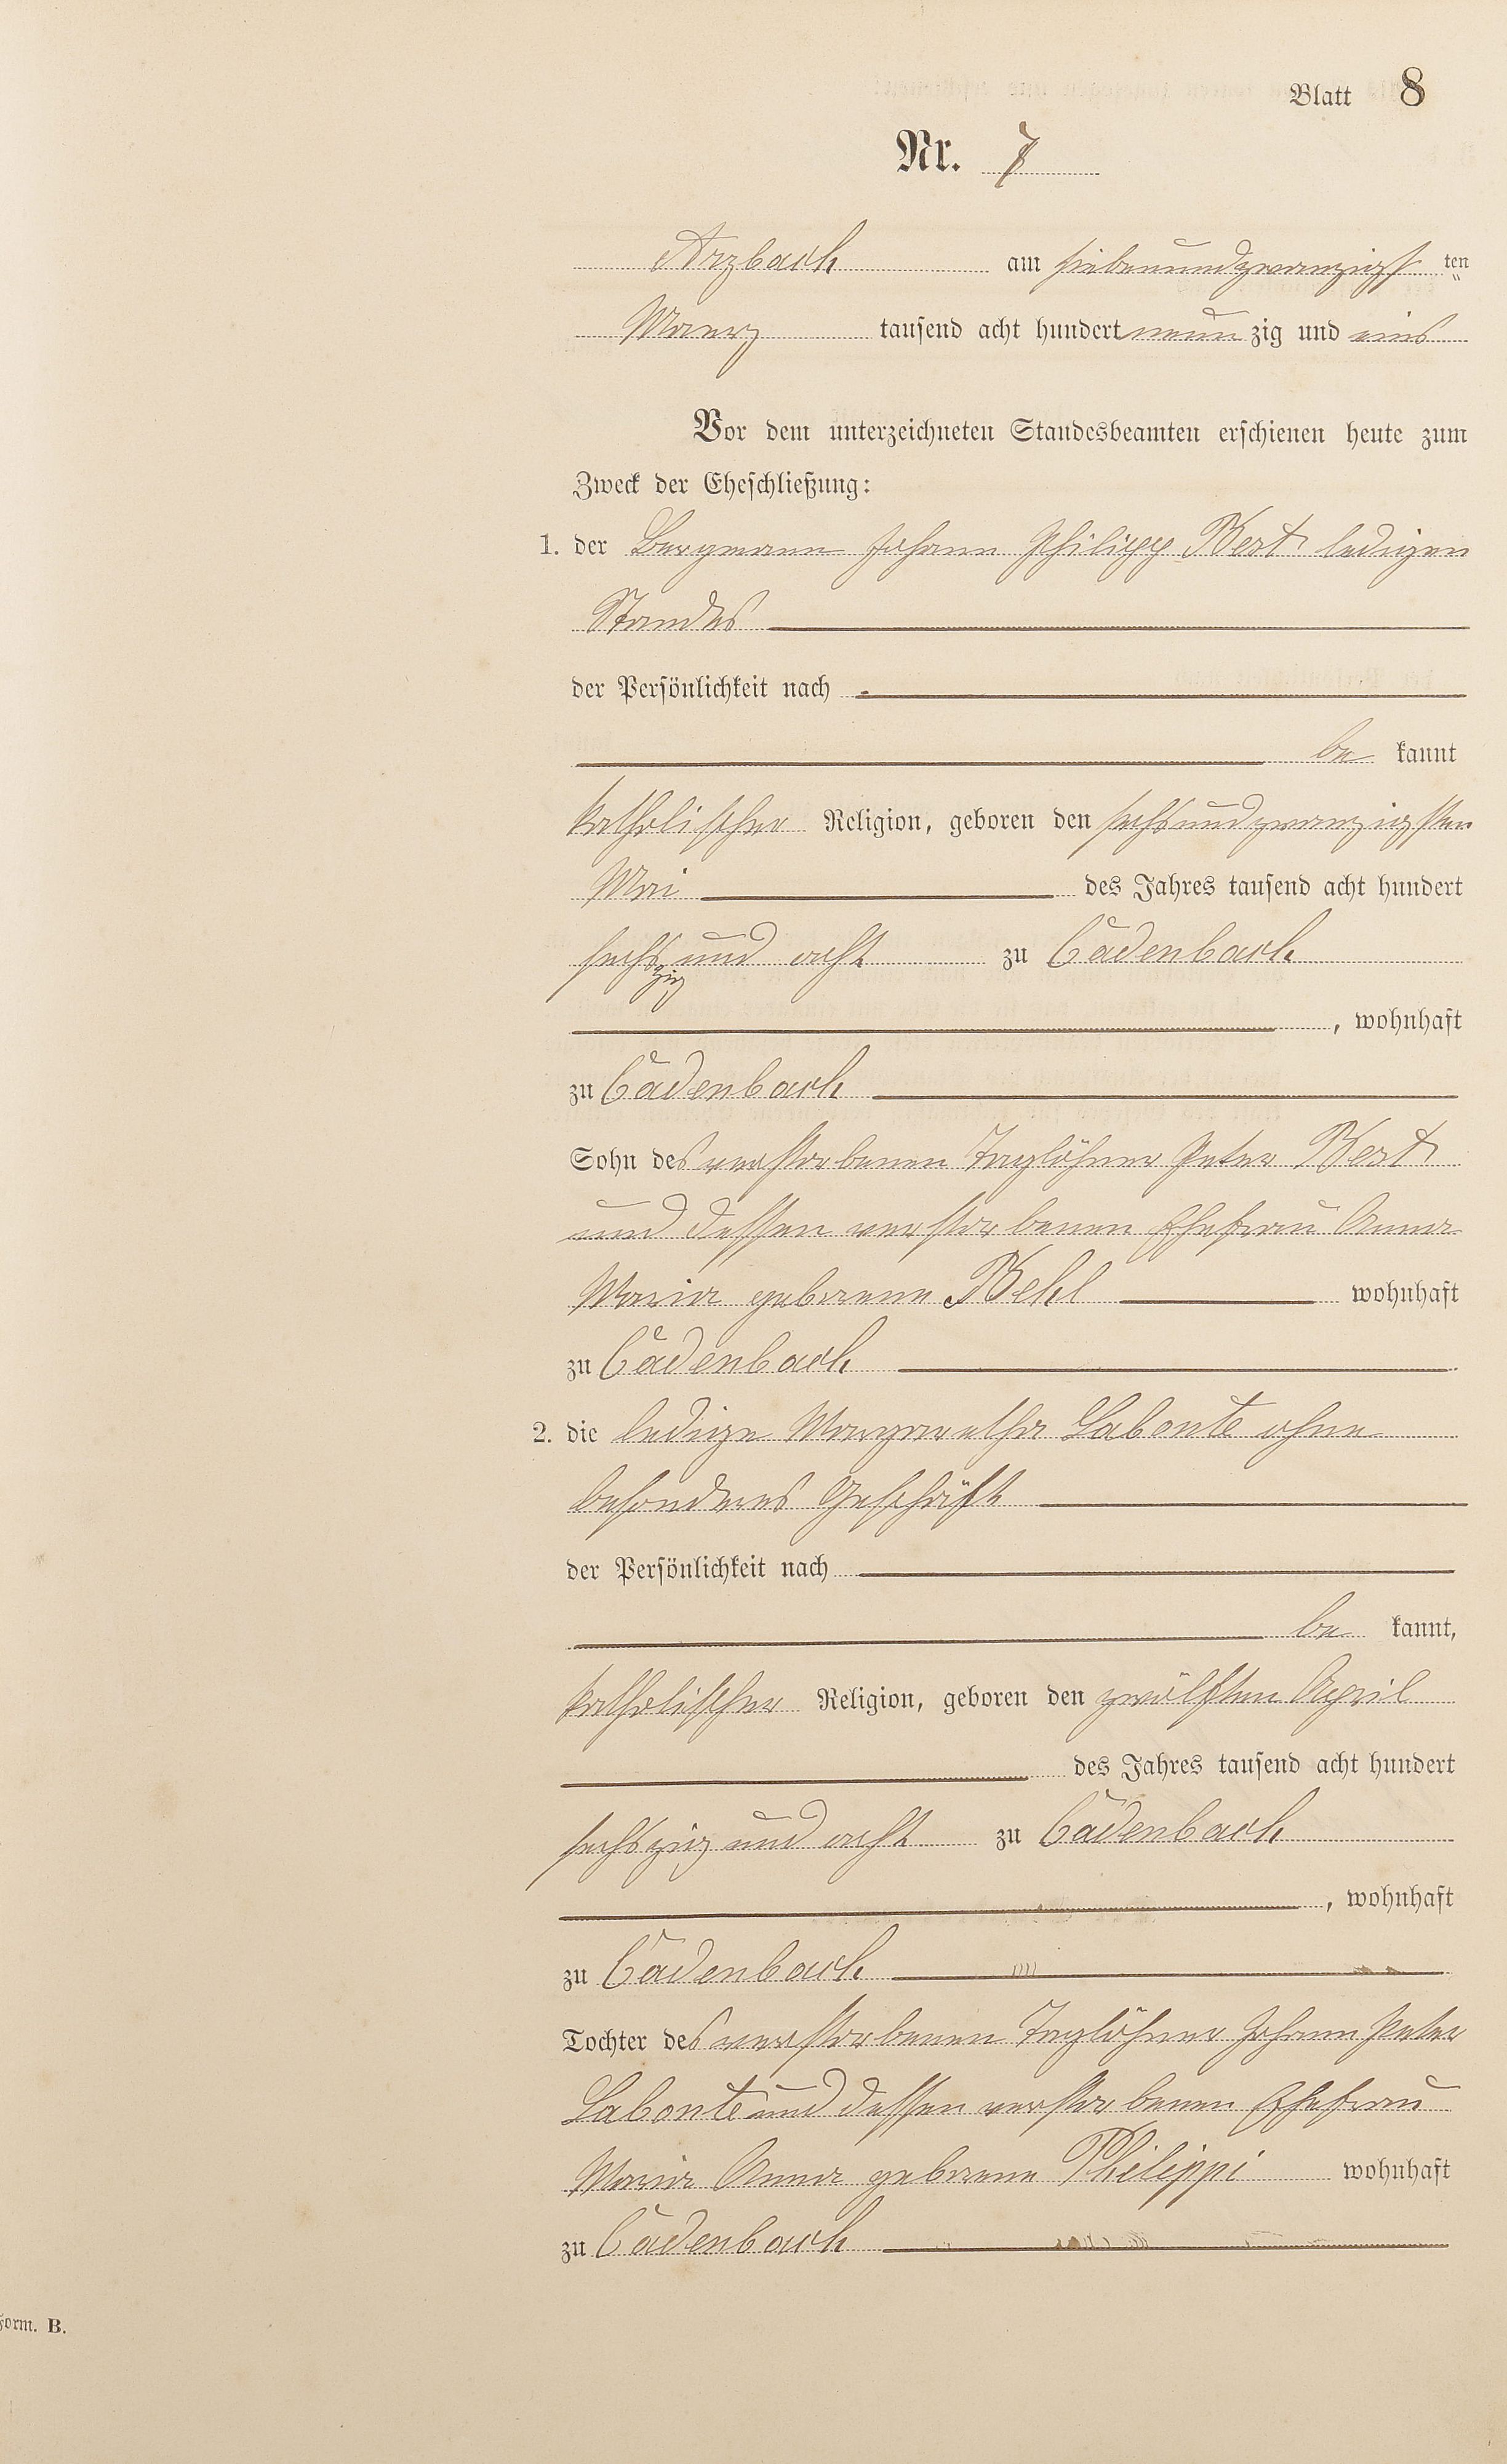 Blatt 8
Nr. 7
Arzbach am siebenundzwanzigst ten
Maerz tausend acht hundert neun zig und eins
Vor dem unterzeichneten Standesbeamten erschienen heute zum
Zweck der Eheschließung:
1. der Bergmann Johann Philipp Bert ledigen
Standes
der Persönlichkeit nach
be kannt
katholischer Religion, geboren den sechsundzwanzigsten
Mai des Jahres tausend acht hundert
sechszig und acht zu Cadenbach
, wohnhaft
zu Cadenbach
Sohn des verstorbenen Taglöhner Peter Bert
und dessen verstorbenen Ehefrau Anna
Maria geborene Behl wohnhaft
zu Cadenbach
2. die ledige Margaretha Labonte ohne
besonderes Geschäft
der Persönlichkeit nach
be kannt,
katholischer Religion, geboren den zwölften April
des Jahres tausend acht hundert
sechszig und acht zu Cadenbach
, wohnhaft
zu Cadenbach
Tochter des verstorbenen Taglöhner Johann Peter
Labonte und dessen verstorbenen Ehefrau
Maria Anna geborene Philippi wohnhaft
zu Cadenbach
Form. B.